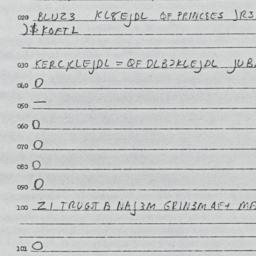 020 BLUZ3 KL8EJDL QF PRINCEES JR3
)$KOFTL
030 KERCKLEJDL = QF DLB2KLEJDL JUB
040 O
050 —
060 O
070 O
080 O
090 O
100 ZI TRUGJT B NAJ3M GRIN3M
101 O